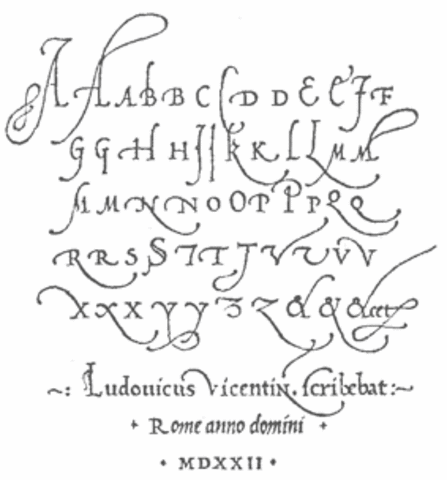 A A A B B C D D E E F F
G G H H I I K K L L M M
M M N N O O P P P Q Q
R R S S T T T V V V V
X X X Y Y Z Z & & &cet
~: Ludouicus Vicentin. ſcribebat:~
Rome anno domini
MDXXII